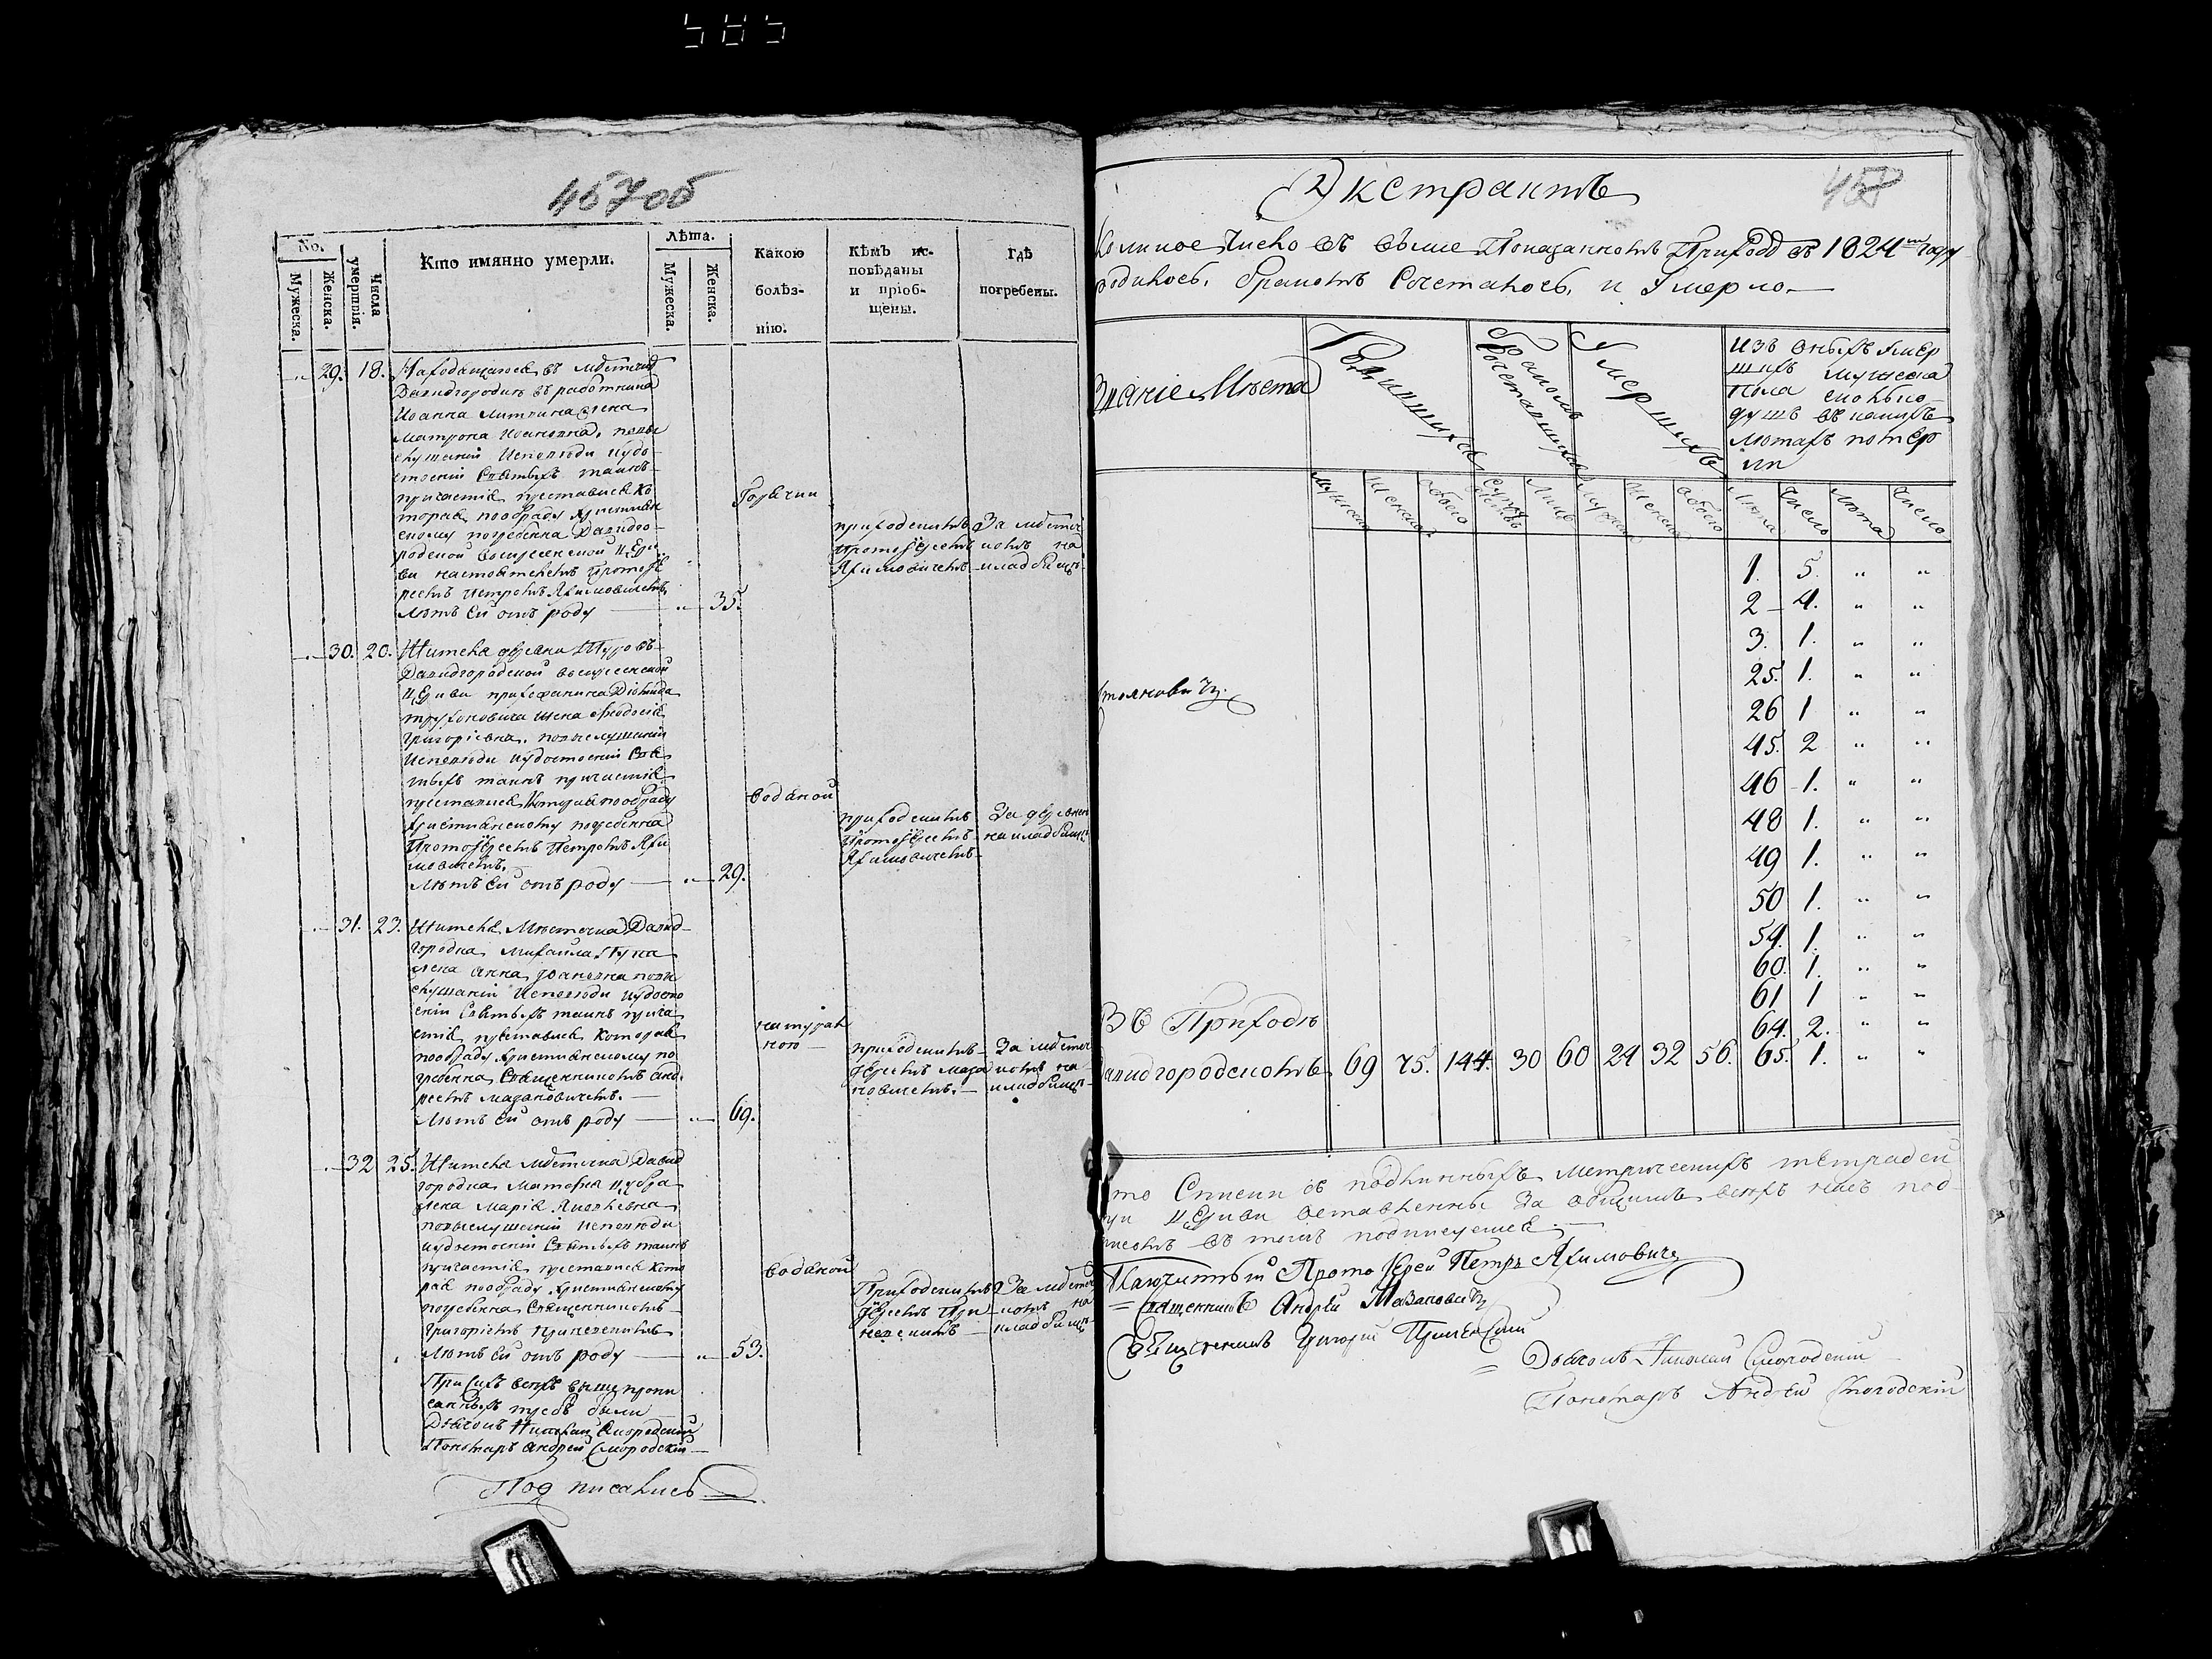 585
457 об
No.
Мужеска.
Женска.
Числа умертвія.
Кто имянно умерли.
Лѣта.
Мужеска.
Женска.
Какою
болѣз-
нію.
Кѣмъ ис-
повѣданы
и пріоб-
щены.
гдѣ
погребены.
29. 18. Находящагося въ мѣстечкѣ
Давидгородкѣ въ работника
Иоанна Литвина жена
Матрона Иоановна, повы
слушаніи Исповѣди иудо-
стоеніи Святыхъ таинъ
причастія преставися ко
торая пообряду христиан
скому погребенна Давидго-
родской воскресенской Цркви
настоятелемъ Протоіе
реемъ Петромъ Яхимовичемъ
Лѣтъ ей отъ роду — 35.
Горячки
приходскимъ
Протоіереемъ
Яхимовичемъ
За мѣстеч
комъ на
кладбищѣ
30. 20. Жителя деревни Туровъ
Давидгородской воскресенской
Цркви прихожанина
жена Феодосія
Григоріевна, повыслушаніи
Исповѣди иудостоеніи Свя
тыхъ таинъ причастія
преставися Которая пообряду
христианскому погребенна
Протоіереемъ Петромъ Яхи
мовичемъ.
Лѣтъ ей отъ роду — 29.
водяной
приходскимъ
Протоіереемъ
Яхимовичемъ
За деревнею
накладбищѣ
31. 23. Жителя Мѣстечка Давид-
городка Михаила
жена Анна Ивановна повы
слушаніи Исповѣди иудосто
еніи Святыхъ таинъ прича
стія преставися Которая
пообряду христианскому по
гребенна Священникомъ Анд-
реемъ Мазановичемъ.
Лѣтъ ей отъ роду — 69.
натураль
ною
приходскимъ
Іереемъ Маза
новичемъ.
За мѣстеч
комъ на
кладбищѣ
32 25. Жителя мѣстечка Давид
городка Матфея
жена Марія Яковлевна
повыслушаніи исповѣди
иудостоеніи Святыхъ таинъ
причастія преставися Кото
рая пообряду христианскому
погребенна Священникомъ
Григоріемъ
Лѣтъ ей отъ роду — 53.
водяной
Приходскимъ
Іереемъ
За мѣстеч
комъ на
кладбищѣ
При сихъ всѣхъ выше пропи
санныхъ требъ были
Дьячокъ Николай Смородскій
Пономарь Андрей Смородскій
Подписались
458
Экстрактъ
Коликое Число въ выше Показанномъ Приходѣ въ 1824мъ году
родилось, бракомъ Сочеталось, и Умерло.
Званіе Мѣста
Родившихся
Бракомъ Сочетавшихся
Умершихъ
Изъ оныхъ умер
шихъ мужеска
пола сколько
душъ въ какихъ
лѣтахъ помер
ли
Мужска
Женска
Обоего
Супружествъ
Лицъ
Мужска
Женска
Обоего
Лѣта
Число
Лѣта
Число
1. 5. „ „
2 4. „ „
3. 1. „ „
25. 1. „ „
26 1 „ „
45. 2 „ „
46 1. „ „
48 1. „ „
49 1. „ „
50 1. „ „
54. 1. „ „
60. 1. „ „
61 1 „ „
64. 2. „ „
Въ Приходѣ
Давидгородскомъ 69 75. 144. 30 60 24 32 56. 65. 1. „ „
что Списки съ подлинныхъ метрическихъ тетрадей
при Цркви оставленны За общимъ всѣхъ насъ под-
писомъ въ томъ подписуемся
Прото Іерей Петръ Яхимовичъ
Священникъ Андрей Мазановичъ
Священникъ Григорій
Дьячокъ Николай Смородскій
Пономарь Андрей Смородскій